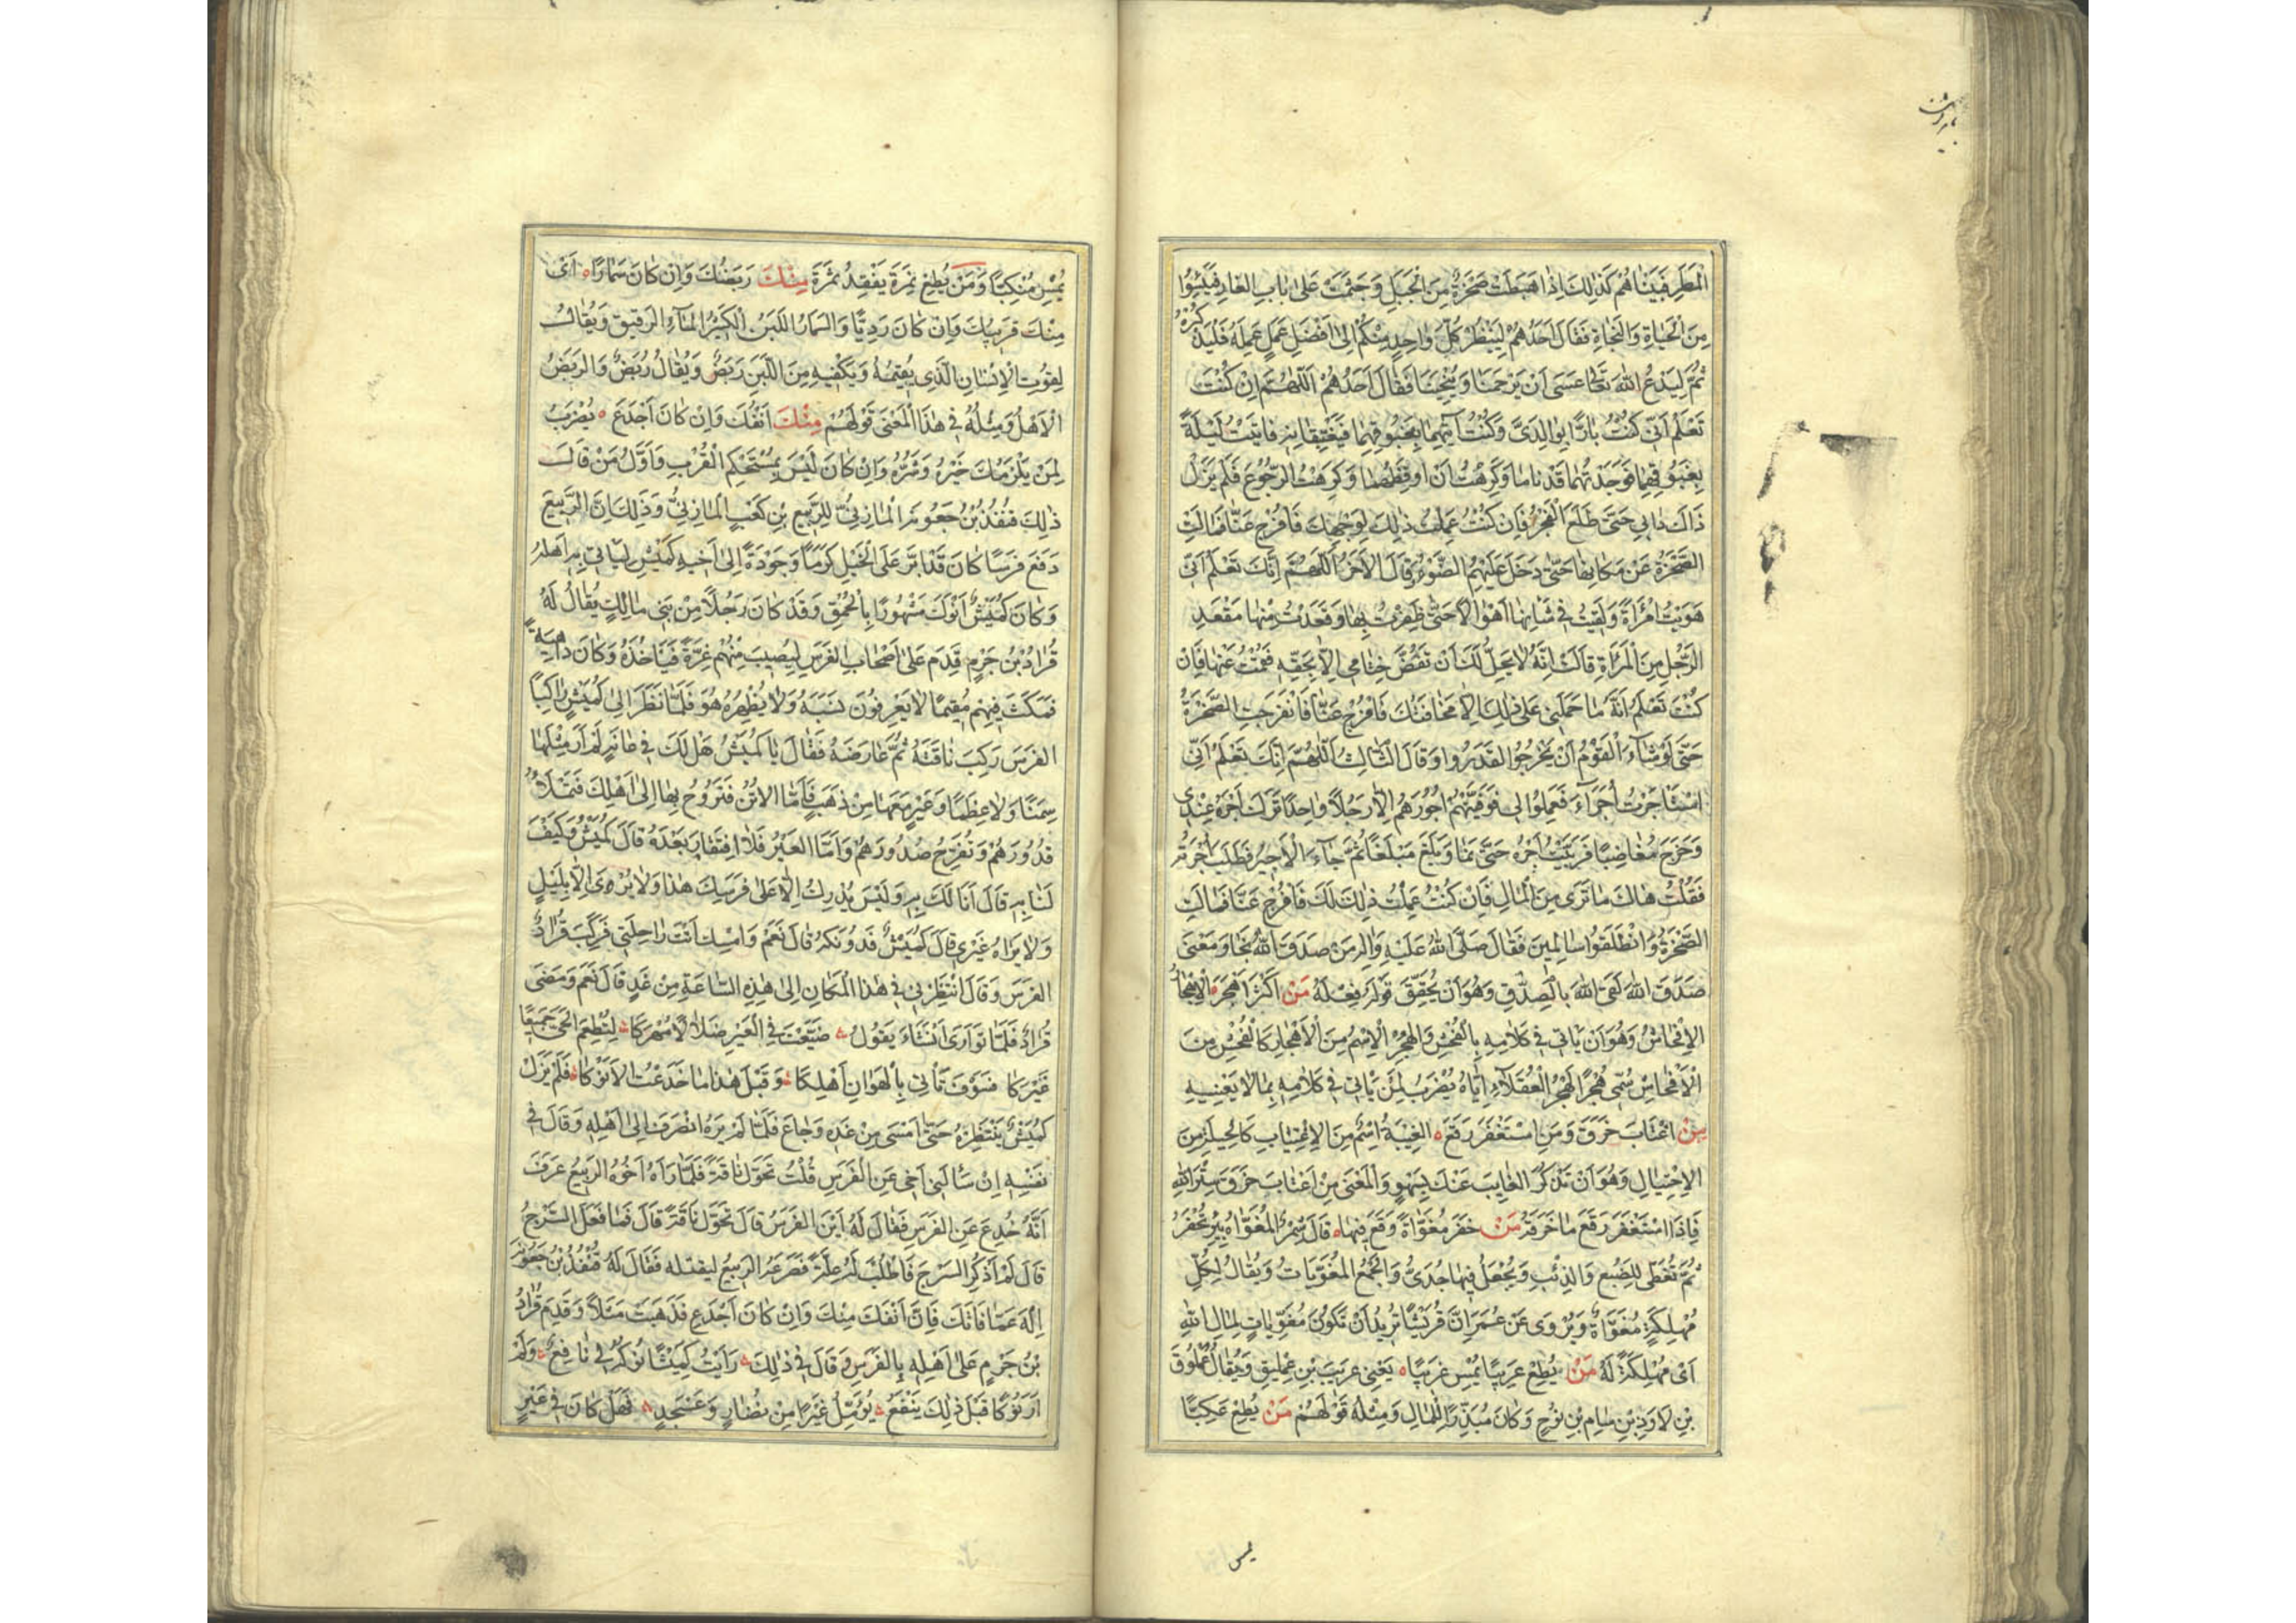 المَطَرِ فَبَيْنَاهُمْ كَذٰلِكَ اِذَا هَبَطَتْ صَخْرَةٌ مِنَ الْجَبَلِ وَجَثَمَتْ عَلىٰ بَابِ الغَارِ فَيَئِسُوا
مِنَ الْحَيَاةِ وَالنَّجَاةِ فَقَالَ اَحَدُهُمْ لِيَنْظُرْ كُلُّ وَاحِدٍ مِنْكُمْ اِلىٰ اَفْضَلِ عَمَلٍ عَمِلَهُ فَليَذْكُرْهُ
ثُمَّ لِيَدْعُ اللهَ تَعَالى عَسَى اَنْ يَرْحَمَنَا وَيُنْجِيَنَا فَقَالَ اَحَدُهُمْ اَللّٰهُمَّ اِنْ كُنْتَ
تَعْلَمُ اَنِّي كُنْتُ بَارًّا بِوَالِدَيَّ وَكُنْتُ آتِيهِمَا بِغَبُوقِهِمَا فَيَغْتَبِقَانِهِ فَاتَيْتُ لَيْلَةً
بِغَبُوقِهِمَا فَوَجَدْتُهُمَا قَدْ نَامَا وَكَرِهْتُ اَنْ اُوقِظَهُمَا وَكَرِهْتُ الرُّجُوعَ فَلَمْ يَزَلْ
ذَاكَ دَابِي حَتّىٰ طَلَعَ الْفَجْرُ فَاِنْ كُنْتُ عَمِلْتُ ذٰلِكَ لِوَجْهِكَ فَافْرُجْ عَنَّا فَمَالَتِ
الصَّخْرَةُ عَنْ مَكَانِهَا حَتّىٰ دَخَلَ عَلَيْهِمُ الضَّوْءُ وَقَالَ الآخَرُ اَللّٰهُمَّ اِنَّكَ تَعْلَمُ اَنِّي
هَوِيتُ امْرَأَةً وَلَقِيتُ فِي شَانِهَا اَهْوَالًا حَتّىٰ ظَفِرْتُ بِهَا وَقَعَدْتُ مِنْهَا مَقْعَدَ
الرَّجُلِ مِنَ الْمَرْأَةِ قَالَتْ اِنَّهُ لَا يَحِلُّ لَكَ اَنْ تَفُضَّ خَاتَمِي اِلَّا بِحَقِّهِ فَقُمْتُ عَنْهَا فَاِنْ
كُنْتَ تَعْلَمُ اَنَّهُ مَا حَمَلَنِي عَلىٰ ذٰلِكَ اِلَّا مَخَافَتُكَ فَافْرُجْ عَنَّا فَانْفَرَجَتِ الصَّخْرَةُ
حَتّىٰ لَوْ شَاءَ الْقَوْمُ اَنْ يَخْرُجُوا لَقَدَرُوا وَقَالَ الثَّالِثُ اَللّٰهُمَّ اِنَّكَ تَعْلَمُ اَنِّي
اسْتَاجَرْتُ اُجَرَاءَ فَعَمِلُوا لِي فَوَفَّيْتُهُمْ اُجُورَهُمْ اِلَّا رَجُلًا وَاحِدًا تَرَكَ اَجْرَهُ عِنْدِي
وَخَرَجَ مُغَاضِبًا فَرَبَّيْتُ اَجْرَهُ حَتّىٰ نَمَا وَبَلَغَ مَبْلَغًا ثُمَّ جَاءَ الْاَجِيرُ فَطَلَبَ اُجْرَتَهُ
فَقُلْتُ هَاكَ مَا تَرىٰ مِنَ الْمَالِ فَاِنْ كُنْتُ عَمِلْتُ ذٰلِكَ لَكَ فَافْرُجْ عَنَّا فَمَالَتِ
الصَّخْرَةُ وَانْطَلَقُوا سَالِمِينَ فَقَالَ صَلَّى اللهُ عَلَيْهِ وَاٰلِهِ مَنْ صَدَقَ اللهَ نَجَا وَمَعْنىٰ
صَدَقَ اللهَ لَقِيَ اللهَ بِالصِّدْقِ وَهُوَ اَنْ يُحَقِّقَ قَوْلَهُ فِعْلُهُ مَنْ اَكْثَرَ اَهْجَرَ الْاِهْجَارُ
الاِفْحَاشُ وَهُوَ اَنْ يَاتِيَ فِي كَلَامِهِ بِالْفُحْشِ وَالهُجْرُ الْاِسْمُ مِنَ الْاِهْجَارِ كَالْفُحْشِ مِنَ
الْاِفْحَاشِ سُمِّيَ هُجْرًا لِهَجْرِ الْعُقَلَاءِ اِيَّاهُ يُضْرَبُ لِمَنْ يَاتِي فِي كَلَامِهِ بِمَا لَا يَعْنِيهِ
مَنْ اغْتَابَ خَرَقَ وَمَنِ اسْتَغْفَرَ رَقَعَ الغِيْبَةُ اِسْمٌ مِنَ الْاِغْتِيَابِ كَالْحِيلَةِ مِنَ
الاِحْتِيَالِ وَهُوَ اَنْ تَذْكُرَ الغَايِبَ عَنْكَ بِسُوءٍ وَالْمَعْنىٰ مَنْ اغْتَابَ خَرَقَ سِتْرَ اللهِ
فَاِذَا اسْتَغْفَرَ رَقَعَ مَا خَرَقَهُ مَنْ حَفَرَ مُغَوَّاةً وَقَعَ فِيهَا قَالَ شَمِرٌ المُغَوَّاةُ بِيْرٌ تُحْفَرُ
ثُمَّ تُغَطّىٰ لِلضَّبُعِ وَالذِّئْبِ وَيُجْعَلُ فِيهَا جَدْيٌ وَالْجَمْعُ المُغَوَّيَاتُ وَيُقَالُ لِكُلِّ
مُهْلِكَةٍ مُغَوَّاةٌ وَيُرْوىٰ عَنْ عُمَرَ اِنَّ قُرَيْشًا تُرِيدُ اَنْ تَكُونَ مُغَوِّيَاتٍ لِمَالِ اللهِ
اَيْ مُهْلِكَةً لَهُ مَنْ يُطِعْ عَرِيبًا يُمْسِ غَرِيبًا يَعْنِي عَرِيبَ بْنِ عِمْلِيقٍ وَيُقَالُ عُمْلُوقَ
بْنِ لَاوَذِ بْنِ سَامِ بْنِ نُوحٍ وَكَانَ مُبَذِّرًا لِلْمَالِ وَمِثْلُهُ قَوْلُهُمْ مَنْ يُطِعْ عَكِبًا
يمس
يُمْسِ مُنْكَبًّا وَمَنْ يُطِعْ نَمِرَةَ يَفْقِدْ ثَمَرَةً مِنْكَ رَبَضُكَ وَاِنْ كَانَ سَمَارًا اَيْ
مِنْكَ قَرِيبُكَ وَاِنْ كَانَ رَدِيًّا وَالسَّمَارُ اللَّبَنُ الْكَثِيرُ الْمَاءِ الرَّقِيقُ وَيُقَالُ
لِقُوتِ الْاِنْسَانِ الَّذِي يُقِيمُهُ وَيَكْفِيهِ مِنَ اللَّبَنِ رَبَضٌ وَيُقَالُ رُبْضٌ وَالرَّبَضُ
الْاَهْلُ وَمِثْلُهُ فِي هٰذَا الْمَعْنىٰ قَوْلُهُمْ مِنْكَ اَنْفُكَ وَاِنْ كَانَ اَجْدَعَ يُضْرَبُ
لِمَنْ يَلْزَمُكَ خَيْرُهُ وَشَرُّهُ وَاِنْ كَانَ لَيْسَ بِمُسْتَحْكِمِ الْقُرْبِ وَاَوَّلُ مَنْ قَالَ
ذٰلِكَ قُنْفُذُ بْنُ جَعُونَةَ الْمَازِنِيُّ لِلرَّبِيعِ بْنِ كَعْبٍ الْمَازِنِيِّ وَذٰلِكَ اَنَّ الرَّبِيعَ
دَفَعَ فَرَسًا كَانَ قَدْ اَبَرَّ عَلَى الْخَيْلِ كَرَمًا وَجَوْدَةً اِلىٰ اَخِيهِ كَمِيْشٍ لِيَاتِيَ بِهِ اَهْلَهُ
وَكَانَ كَمِيْشٌ اَنْوَكَ مَشْهُورًا بِالْحُمْقِ وَقَدْ كَانَ رَجُلًا مِنْ بَنِي مَالِكٍ يُقَالُ لَهُ
قُرَادُ بْنُ جَرْمٍ قَدِمَ عَلىٰ اَصْحَابِ الفَرَسِ لِيُصِيبَ مِنْهُمْ غِرَّةً فَيَاخُذَهُ وَكَانَ دَاهِيَةً
فَمَكَثَ فِيهِمْ مُقِيمًا لَا يَعْرِفُونَ نَسَبَهُ وَلَا يُظْهِرُهُ هُوَ فَلَمَّا نَظَرَ اِلىٰ كَمِيْشٍ رَاكِبًا
الفَرَسَ رَكِبَ نَاقَتَهُ ثُمَّ عَارَضَهُ فَقَالَ يَا كَمِيْشُ هَلْ لَكَ فِي عَانَةٍ لَمْ اَرَ مِثْلَهَا
سِمَنًا وَلَا عِظَمًا وَعَيْرٍ مَعَهَا مِنْ ذَهَبٍ فَاَمَّا الاُتُنُ فَتَرُوحُ بِهَا اِلىٰ اَهْلِكَ فَتَمْلَأُ
قُدُورَهُمْ وَتُفْرِحُ صُدُورَهُمْ وَاَمَّا العَيْرُ فَلَا افْتِقَارَ بَعْدَهُ قَالَ كَمِيْشٌ وَكَيْفَ
لَنَا بِهِ قَالَ اَنَا لَكَ بِهِ وَلَيْسَ يُدْرَكُ اِلَّا عَلىٰ فَرَسِكَ هٰذَا وَلَا يُرىٰ اِلَّا بِلَيْلٍ
وَلَا يَرَاهُ غَيْرِي قَالَ كَمِيْشٌ فَدُونَكَهُ قَالَ نَعَمْ وَامْسِكْ اَنْتَ رَاحِلَتِي فَرَكِبَ قُرَادٌ
الفَرَسَ وَقَالَ انْتَظِرْنِي فِي هٰذَا الْمَكَانِ اِلىٰ هٰذِهِ السَّاعَةِ مِنْ غَدٍ قَالَ نَعَمْ وَمَضىٰ
قُرَادٌ فَلَمَّا تَوَارىٰ اَنْشَاءَ يَقُولُ ضَيَّعْتَ فِي الْعَيْرِ ضَلَالًا مُهْرَكَا لِتُطْعِمَ الْحَيَّ جَمِيعًا
غَيْرَكَا فَسَوْفَ تَأْتِي بِالْهَوَانِ اَهْلَكَا وَقَبْلَ هٰذَا مَا خَدَعْتُ الْاَنْوَكَا فَلَمْ يَزَلْ
كَمِيْشٌ يَنْتَظِرُهُ حَتّىٰ اَمْسىٰ مِنْ غَدِهِ وَجَاعَ فَلَمَّا لَمْ يَرَهُ انْصَرَفَ اِلىٰ اَهْلِهِ وَقَالَ فِي
نَفْسِهِ اِنْ سَاَلَنِي اَخِي عَنِ الْفَرَسِ قُلْتُ تَحَوَّلَ نَاقَةً فَلَمَّا رَاٰهُ اَخُوهُ الرَّبِيعُ عَرَفَ
اَنَّهُ خُدِعَ عَنِ الفَرَسِ فَقَالَ لَهُ اَيْنَ الفَرَسُ قَالَ تَحَوَّلَ نَاقَةً قَالَ فَمَا فَعَلَ السَّرْجُ
قَالَ لَمْ اَذْكُرِ السَّرْجَ فَاَطْلُبَ لَهُ عِلَّةً فَصَرَعَهُ الرَّبِيعُ ليقتله فَقَالَ لَهُ قُنْفُذُ بْنُ جَعُونَةَ
اِلْهَ عَمَّا فَاتَكَ فَاِنَّ اَنْفَكَ مِنْكَ وَاِنْ كَانَ اَجْدَعَ فَذَهَبَتْ مَثَلًا وَقَدِمَ قُرَادُ
بْنُ جَرْمٍ عَلىٰ اَهْلِهِ بِالْفَرَسِ وَقَالَ فِي ذٰلِكَ رَاَيْتُ كَمِيْشًا نُوكُهُ لِي نَافِعٌ وَلَمْ
اَرَ نُوكًا قَبْلَ ذٰلِكَ يَنْفَعُ يُؤَمِّلُ عَيْرًا مِنْ نُضَارٍ وَعَسْجَدٍ فَهَلْ كَانَ فِي عَيْرٍ